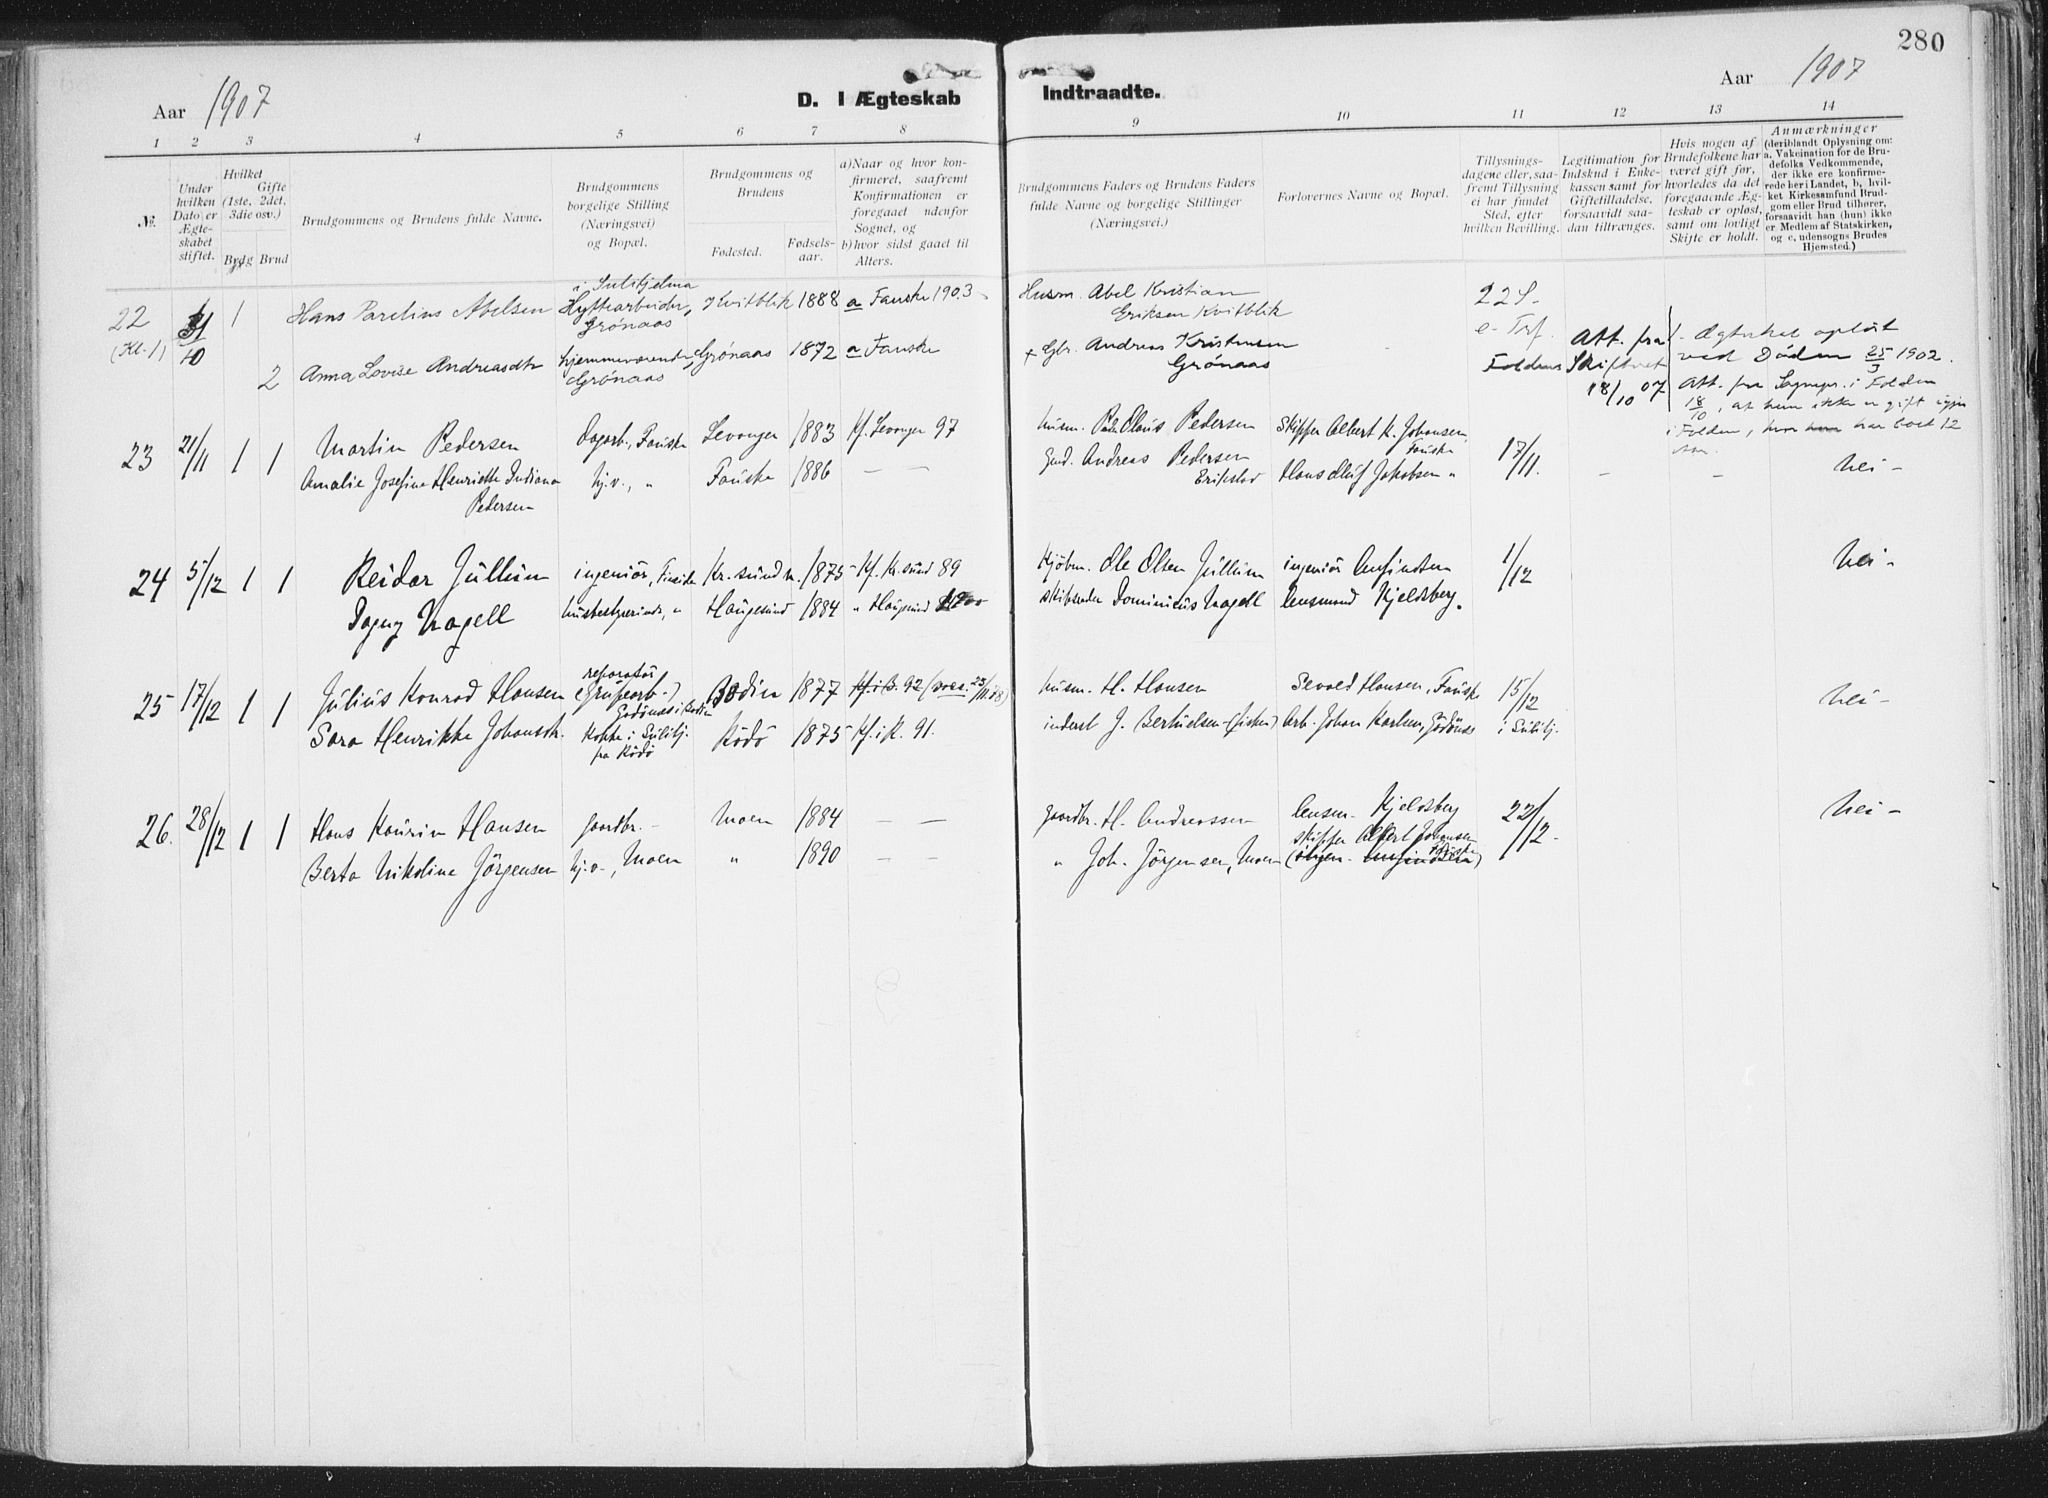 280
Aar 1907
D. I Ægteskab Indtraadte.
Aar 1907
1 2 3 4 5 6 7 8 9 10 11 12 13 14
№.
Under hvilken Dato er Ægteskabet stiftet.
Hvilket Gifte (1ste, 2det, 3die osv.)
Brdg Brud
Brudgommens og Brudens fulde Navne.
Brudgommens borgelige Stilling (Næringsvei) og Bopæl.
Brudgommens og Brudens
Fødested.
Fødselsaar.
a) Naar og hvor konfirmeret, saafremt Konfirmationen er foregaaet udenfor Sognet, og
b) hvor sidst gaaet til Alters.
Brudgommens Faders og Brudens Faders fulde Navne og borgelige Stillinger (Næringsvei.)
Forlovernes Navne og Bopæl.
Tillysningsdagene eller, saafremt Tillysning ei har fundet Sted, efter hvilken Bevilling.
Legitimation for Indskud i Enkekassen samt for Giftetilladelse, forsaavidt saadan tiltrænges.
Hvis nogen af Brudefolkene har været gift før, hvorledes da det foregaaende Ægteskab er opløst, samt om lovligt Skifte er holdt.
Anmærkninger (deriblandt Oplysning om: a. Vakcination for de Brudefolks Vedkommende, der ikke ere konfirmerede her i Landet, b, hvilket Kirkesamfund Brudgom eller Brud tilhører, forsaavidt han (hun) ikke er Medlem af Statskirken, og c, udensogns Brudes Hjemsted.)
22 31/10 1 Hans Parelius Abelsen i Sulitjelma Hyttearbeider, Grønaas Kvitblik 1888 a Fauske 1903 Husm. Abel Kristian Eriksen Kvitblik 22 S. e. Tref.
(Kl. 1) 2 Anna Lovise Andreasdtr hjemmeværende, Grønaas Grønaas 1872 a Fauske + Gbr. Andreas Kristensen Grønaas Foldens Att. fra Skifteret 18/10 07 Ægteskabet opløst ved Døden 25/3 1902.
Att. fra Sognepr. i Folden 18/10, at hun ikke er gift igjen i Folden, hvor hun har boet 12 Aar.
23 21/11 1 1 Martin Pedersen Dagarb., Fauske Levanger 1883 Kf. Levanger 97 husm. Peder Olaus Pedersen Skipper Albert K. Johansen, Fauske 17/11. – – Nei –
Amalie Josefine Henriette Indiana Pedersen hj.v., " Fauske 1886 — — Gmd. Andreas Pedersen Erikstad Hans Oluf Jakobsen "
24 5/12 1 1 Reidar Jullum ingeniør, Fineide Kr.sund n. 1875 Kf. Kr.sund 89 Kjøbm. Ole Olsen Jullum ingeniør Amundsen 1/12 Nei –
Dagny Nagell husbestyrerinde, " Haugesund 1884 " Haugesund 1900 skibsreder Dominicus Nagell lensmand Kjeldsberg.
25 17/12 1 1 Julius Konrad Hansen reparatør (Grubearb.) Godønes i Bodin Bodin 1877 Kf. i B. 92 (vacc. 23/11 08) husm. H. Hansen Sevald Hansen, Fauske 15/12 Nei –
Sara Henrikke Johansdtr. Kokke i Sulitj. fra Rødø Rødø 1875 Kf. i R. 91. inderst J. Bertielsen (fisker) Arb. Johan Karlsen, Godønes i Sulitj.
26. 28/12 1 1 Hans Kaurin Hansen gaardbr. – Moen 1884 — — gaardbr. H. Andreassen lensm. Kjeldsberg 22/12. Nei –
Berta Nikoline Jørgensen hj.v., Moen " 1890 — — " Joh. Jørgensen, Moen skipper Albert Johansen Fauske